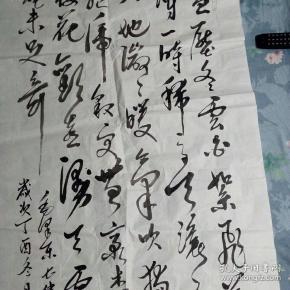 壓冬雲白絮飛
一時稀高天滾
地微微暖氣吹獨
虎豹更無豪杰
花歡喜漫天雪
未足奇
毛澤東七律
歲次丁酉冬月